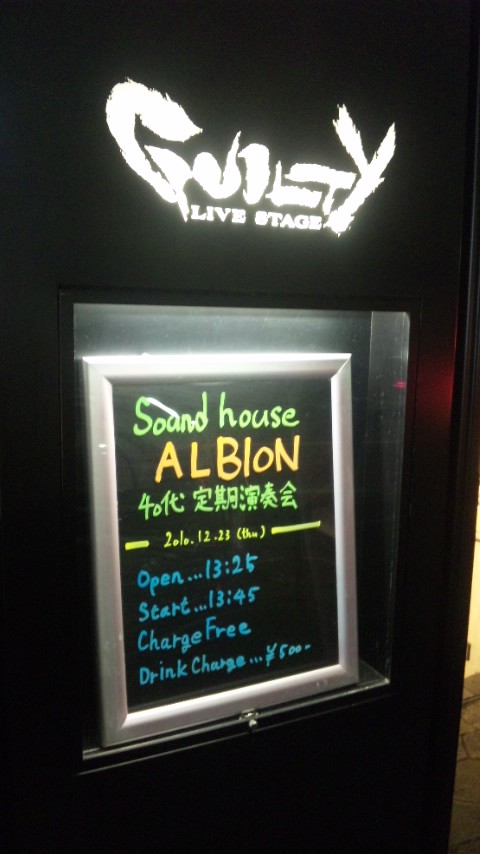 GUILTY
LIVE STAGE
Sound house
ALBION
40代 定期演奏会
2010.12.23 (thu)
Open...13:25
Start...13:45
Charge Free
Drink Charge...¥500-